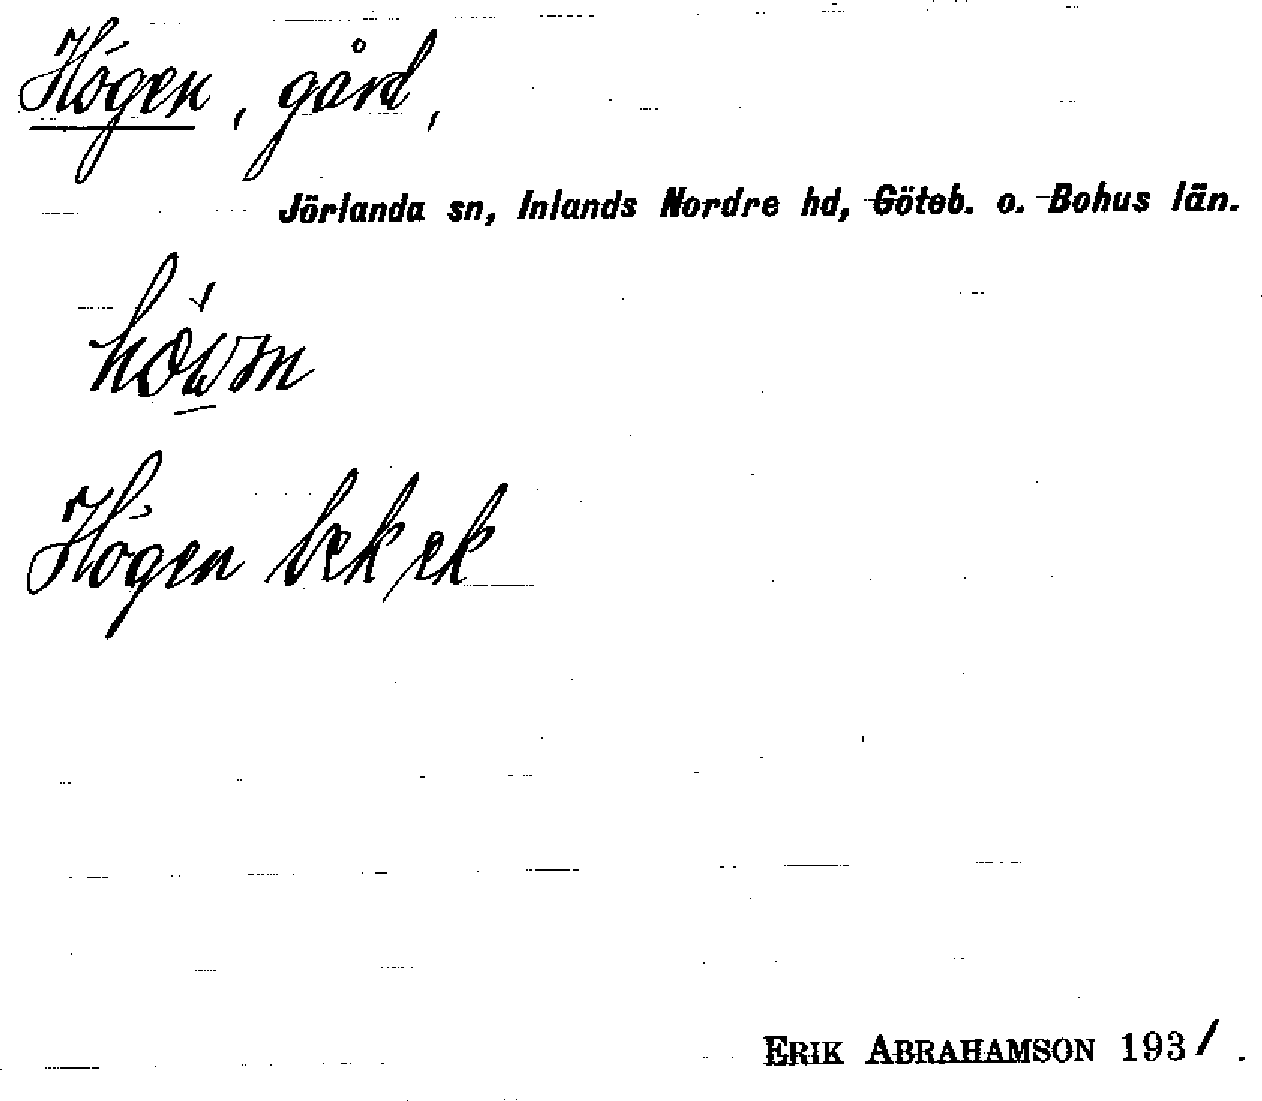 Högen, gård,
Jörlanda sn, Inlands Nordre hd, Göteb. o. Bohus län.
Högen
ERIK ABRAHAMSON 1931.